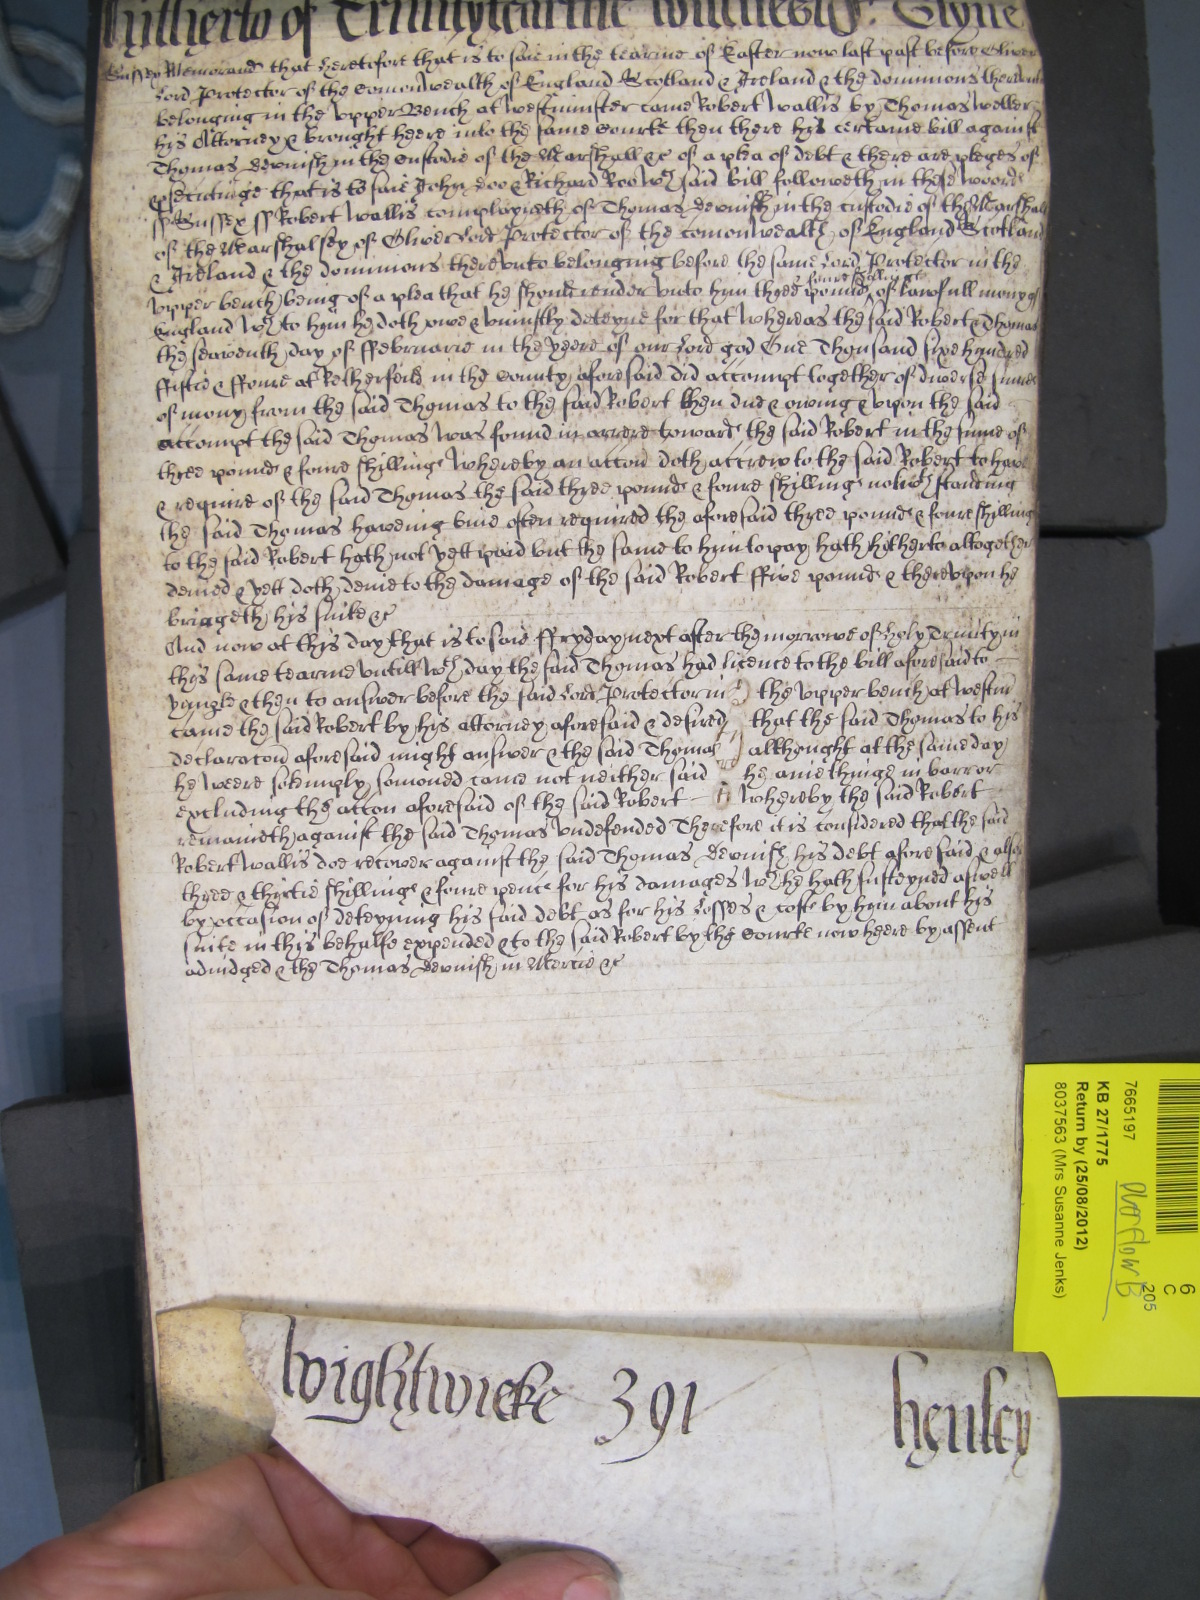 hitherto of Trinitytearme witnes Jo: Glyne
Sussex Memorand that heretofore that is to saie in the tearme of Easter now last past before Oliver
Lord Protector of the Comonwealth of England Scotland & Ireland & the dominions thereunto
belonging in the Upper Bench at westminster came Robert Wallis by Thomas Weller
his Attorney & brought heere into the same Courte then there his certaine bill against
Thomas Devnish in the custodie of the Marshall &c of a plea of debt & there are pleges of
psecutinge that is to saie John Doo & Richard Roo wch said bill followeth in these woords
ss Sussex ss Robert Wallis complayneth of Thomas Devnish in the custodie of the Marshall
of the Marshalsey of Oliver Lord Protector of the Comonwealth of England Scotland
& Ireland & the dominions thereunto belonging before the same Lord Protector in the
upper bench being of a plea that he should render unto him three pounds foure shillings of lawfull mony of
England wch to him he doth owe & uniustly deteyne for that whereas the said Robert & Thomas
the seaventh day of ffebruarie in the yeere of our Lord god One Thousand sixe hundred
ffiftie & ffoure at Retherfeild in the County aforesaid did accompt together of diverse summes
of mony from the said Thomas to the said Robert then due & owing & upon the said
accompt the said Thomas was found in arrere towards the said Robert in the sume of
three pounds & foure shillings whereby an accon doth accrew to the said Robert to have
& require of the said Thomas the said three pounds & foure shillings notwthstanding
the said Thomas haveing bine often required the aforesaid three pounds & foure shillings
to the said Robert hath not yett paid but the same to him to pay hath hitherto altogether
denied & yett doth denie to the damage of the said Robert ffive pounds & thereupon he
bringeth his suite &c
And now at this day that is to saie ffryday next after the morrowe of holy Trinity in
this same tearme untill wch day the said Thomas had licence to the bill aforesaid to
imple & then to answer before the said Lord Protector in the upper bench at westm
came the said Robert by his attorney aforesaid & desired that the said Thomas to his
declaracon aforesaid might answer & the said Thomas althought at the same day
he weere solemply somoned came not neither said he anie thinge in barr or
excluding the accon aforesaid of the said Robert whereby the said Robert
remaineth against the said Thomas undefended Therefore it is considered that the said
Robert Wallis doe recover against the said Thomas Devnish his debt aforesaid & also
three & thirtie shillings & foure pence for his damages wch he hath susteyned aswell
by occasion of deteyning his said debt as for his Losses & costs by him about his
suite in this behalfe expended & to the said Robert by the Courte now heere by assent
adiudged & the Thomas Devnish in Mercie &c
wightwicke 391 henley
7665197
KB 27/1775
Return by (25/08/2012)
8037563 (Mrs Susanne Jenks)
Overflow B
205
6
C